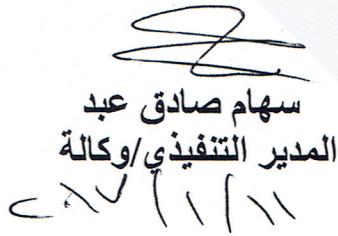 سهام صادق عبد
المدير التنفيذي/وكالة
٢٠١٧/١/١١